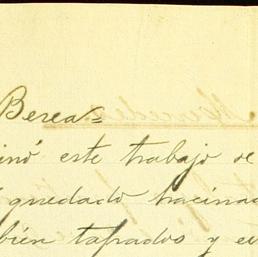 Berea=
inó este trabajo de
quedado hacinad
bién tapados y en